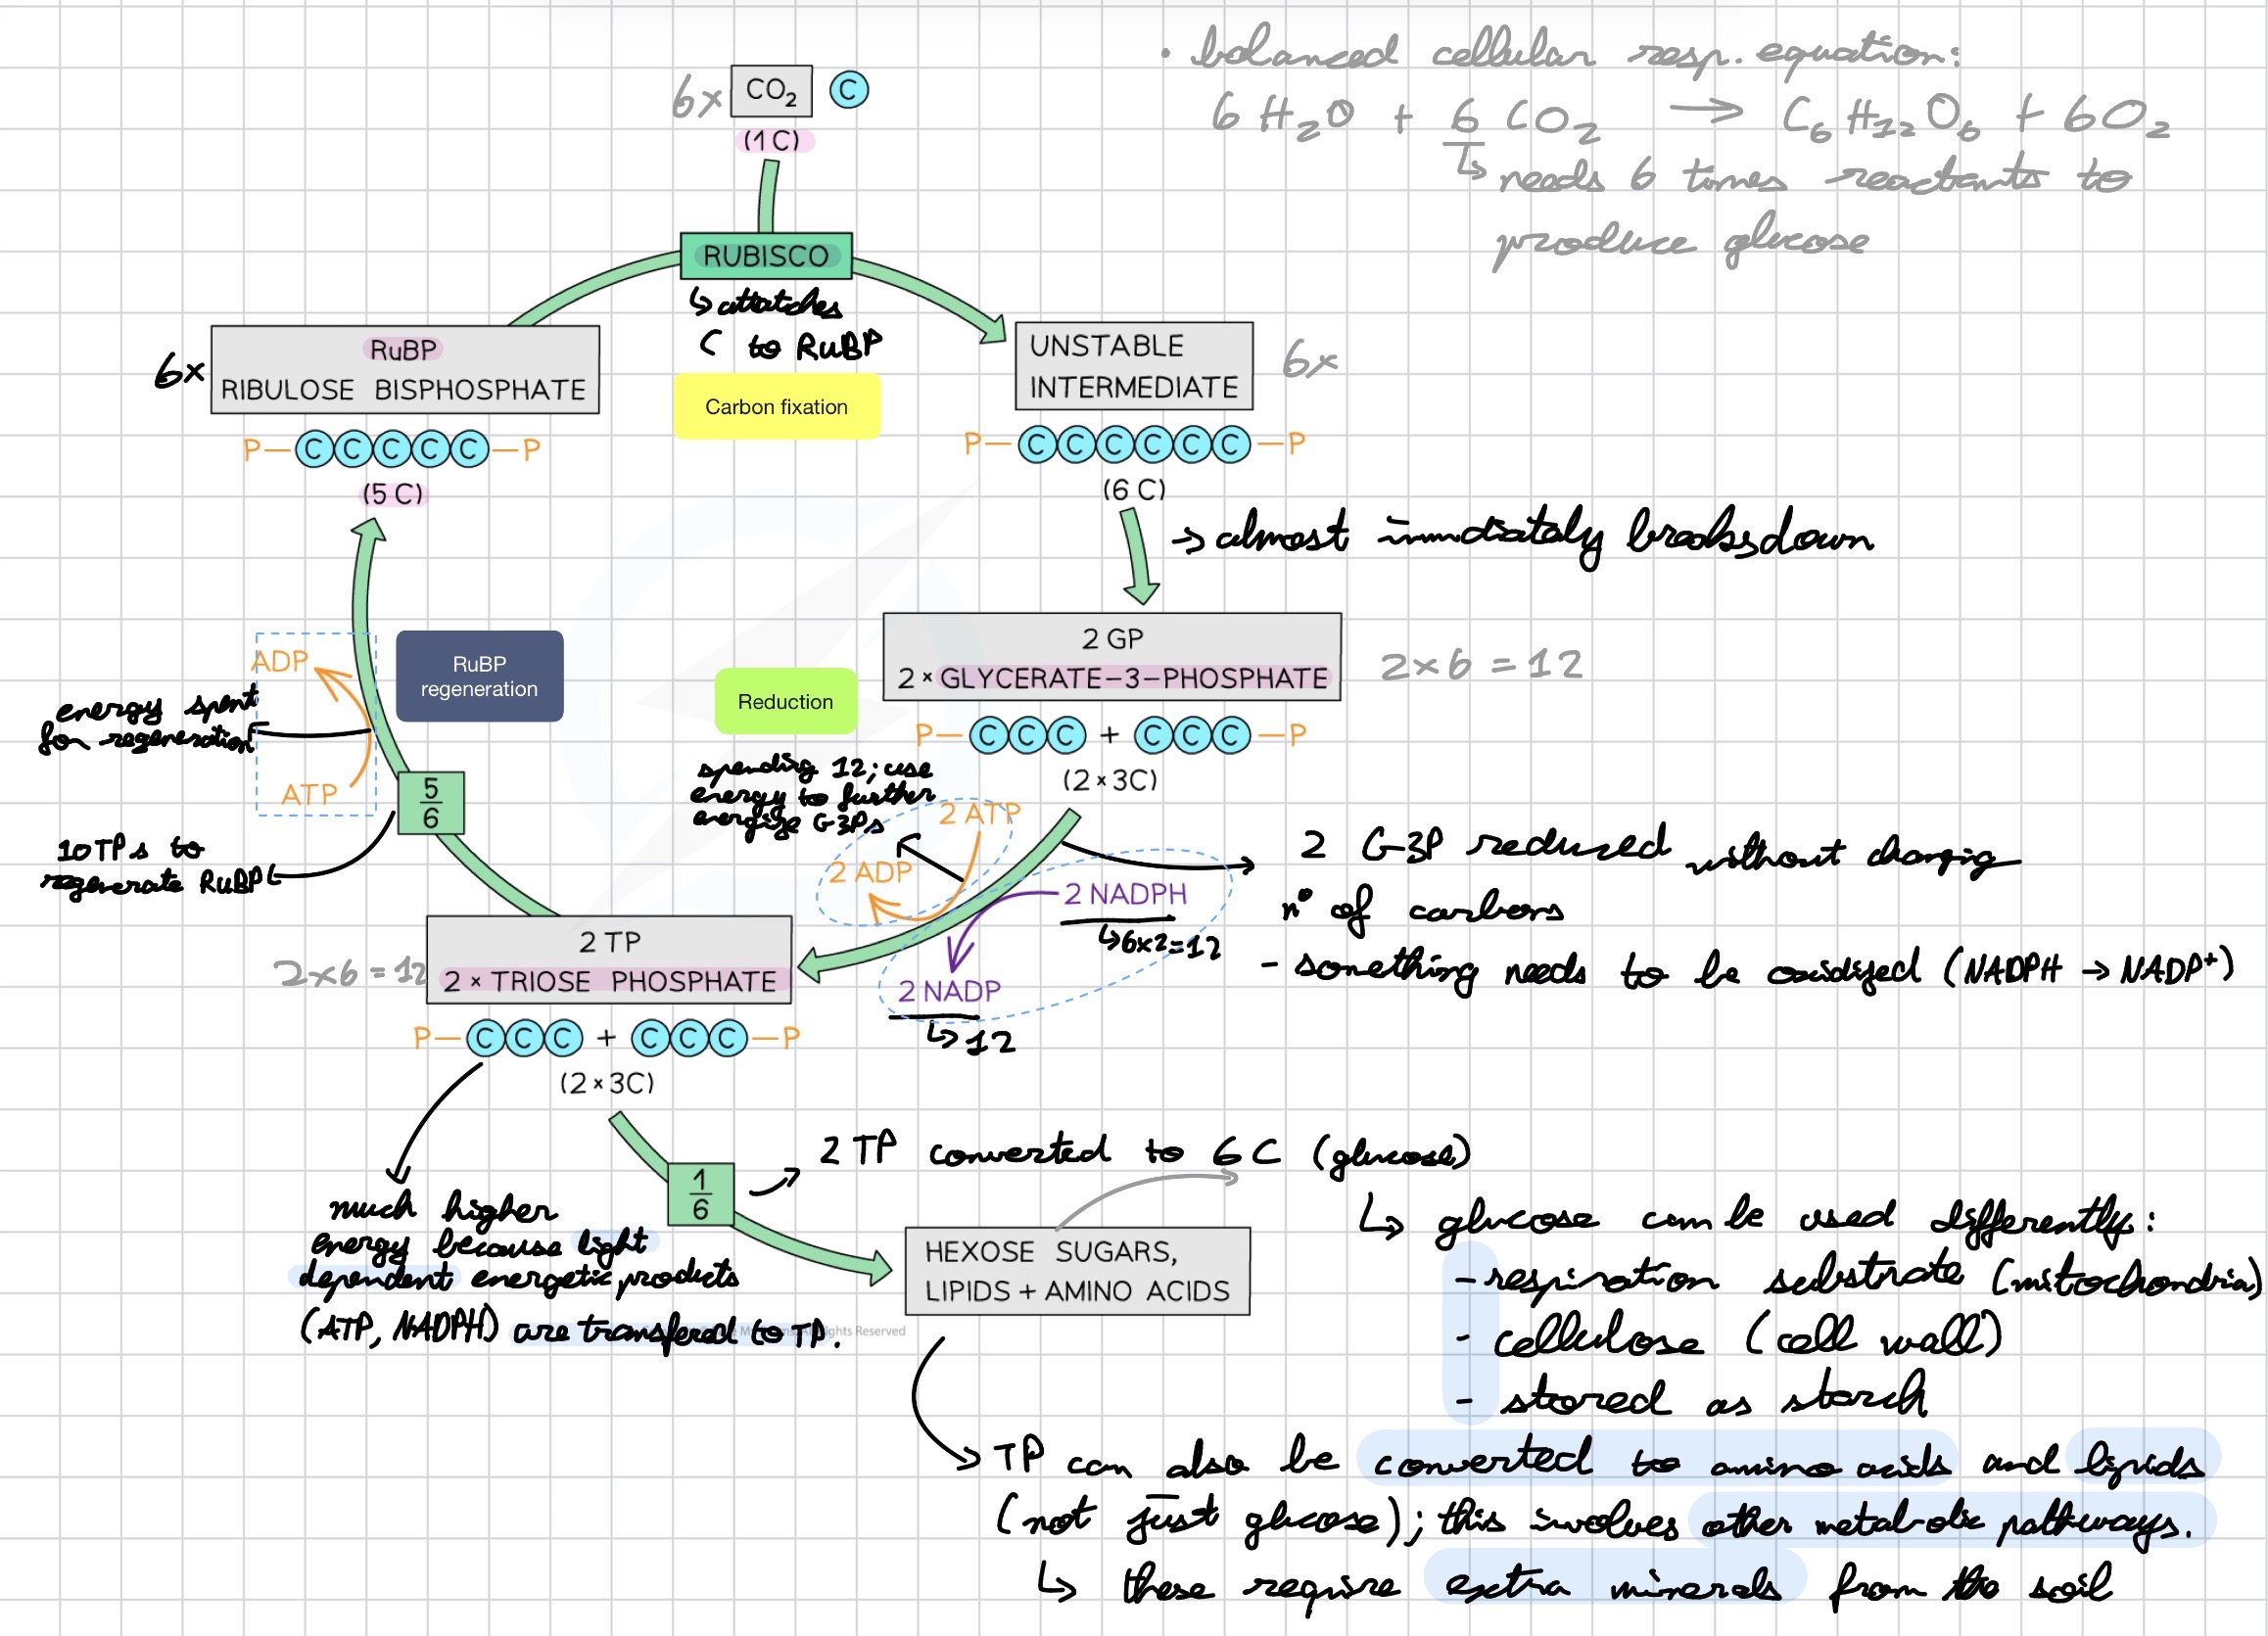 • balanced cellular resp. equation:
6 H₂O + 6 CO₂ → C₆H₁₂O₆ + 6O₂
↳ needs 6 times reactants to
produce glucose
6× CO₂ C
(1 C)
RUBISCO
↳ attatches
C to RuBP
Carbon fixation
6× RuBP
RIBULOSE BISPHOSPHATE
P–CCCCC–P
(5 C)
UNSTABLE
INTERMEDIATE
6×
P–CCCCCC–P
(6 C)
→ almost immediately breaksdown
2 GP
2 × GLYCERATE-3-PHOSPHATE
2×6=12
P–CCC + CCC–P
(2 × 3C)
RuBP
regeneration
Reduction
ADP
ATP
energy spent
for regeneration
5/6
10 TPs to
regenerate RuBP
spending 12; use
energy to further
energise G3Ps
2 ATP
2 ADP
2 NADPH
↳ 6×2=12
2 NADP
↳ 12
2 G3P reduced without changing
nº of carbons
- something needs to be oxidized (NADPH → NADP⁺)
2 TP
2 × TRIOSE PHOSPHATE
2×6=12
P–CCC + CCC–P
(2 × 3C)
much higher
energy because light
dependent energetic products
(ATP, NADPH) are transfered to TP.
ghts Reserved
1/6
2 TP converted to 6C (glucose)
HEXOSE SUGARS,
LIPIDS + AMINO ACIDS
↳ glucose can be used differently:
- respiration substrate (mitochondria)
- cellulose (cell wall)
- stored as starch
TP can also be converted to amino acids and lipids
(not just glucose); this involves other metabolic pathways.
↳ these require extra minerals from the soil